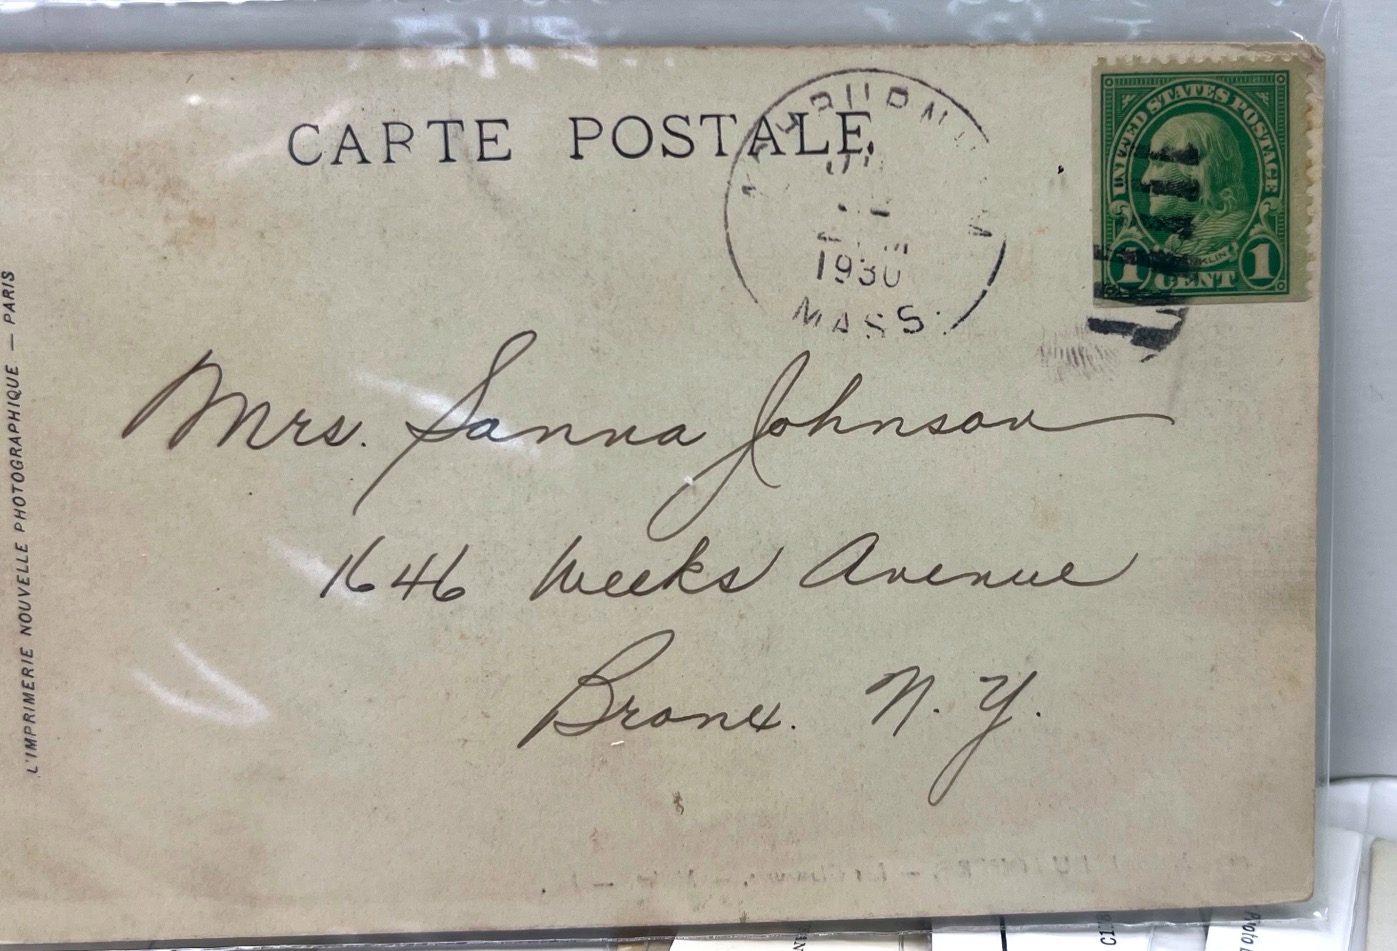 CARTE POSTALE
1930
MASS.
UNITED STATES POSTAGE
1 CENT 1
Mrs. Sanna Johnson
1646 Weeks Avenue
Bronx. N.Y.
L'IMPRIMERIE NOUVELLE PHOTOGRAPHIQUE — PARIS